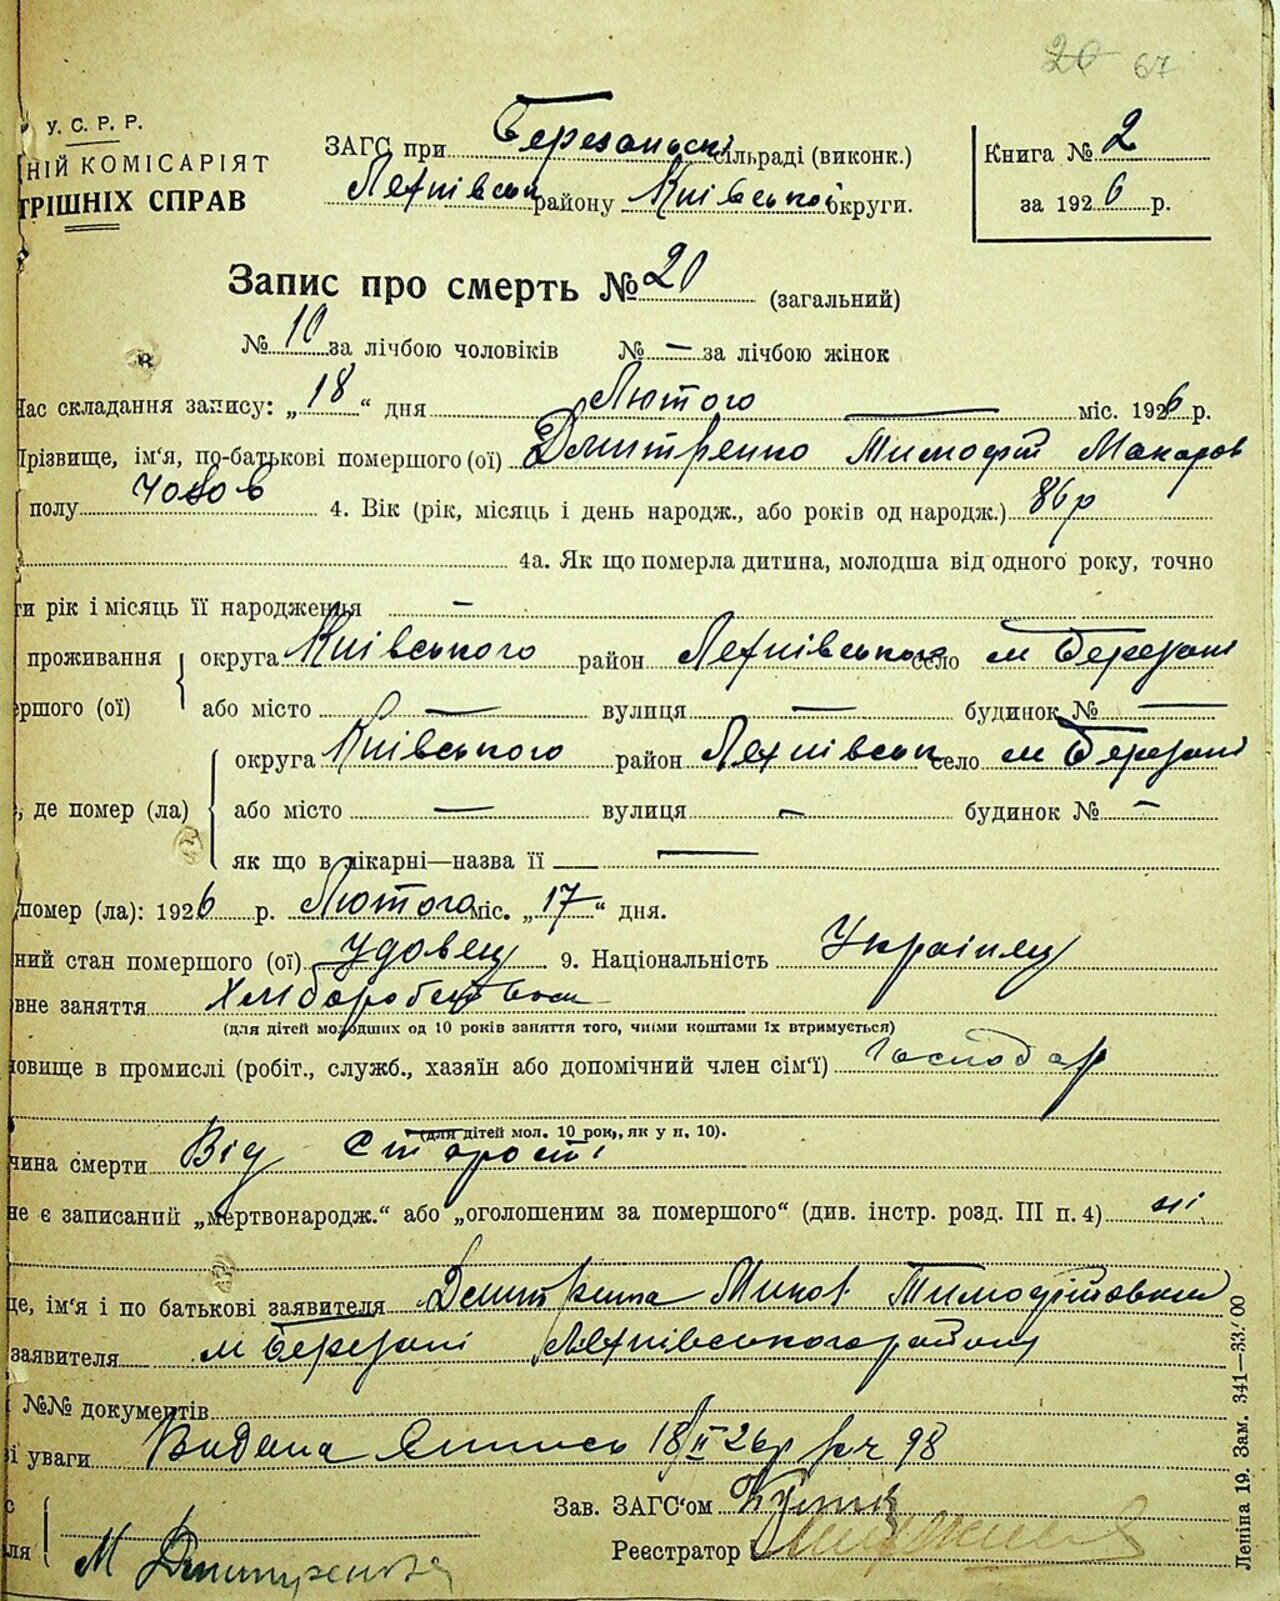 20 67
У. С. Р. Р.
НІЙ КОМІСАРІЯТ
ТРІШНІХ СПРАВ
ЗАГС при Березанські сільраді (виконк.)
Яготнівськ району Київської округи.
Книга № 2
за 1926 р.
Запис про смерть № 20 (загальний)
№ 10 за лічбою чоловіків № — за лічбою жінок
Час складання запису: „18“ дня Лютого міс. 1926 р.
Прізвище, ім‘я, по-батькові помершого (ої) Дмитренко Тимофій Макаров
полу Чолов 4. Вік (рік, місяць і день народж., або років од народж.) 86 р
4а. Як що померла дитина, молодша від одного року, точно
ти рік і місяць її народження —
проживання округа Київського район село м Березані
ршого (ої) або місто — вулиця — будинок № —
округа Київського район село м Березані
, де помер (ла) або місто — вулиця — будинок № —
як що в лікарні—назва її —
помер (ла): 1926 р. Лютого міс. „17“ дня.
ний стан помершого (ої) Удовец 9. Національність Українец
вне заняття Хліборобством
(для дітей молодших од 10 років заняття того, чиїми коштами їх втримується)
ловище в промислі (робіт., служб., хазяїн або допомічний член сім‘ї) Господар
(для дітей мол. 10 рок., як у п. 10).
чина смерти Від старості
не є записаний „мертвонародж.“ або „оголошеним за помершого“ (див. інстр. розд. III п. 4) ні
ще, ім‘я і по батькові заявителя Дмитренко Тимофійович
заявителя м Березані району
№№ документів
і уваги Видана Випись 18/II 26 р № 98
Зав. ЗАГС‘ом
Реєстратор
ля М Дмитренко
Леніна 19. Зам. 341—33.00